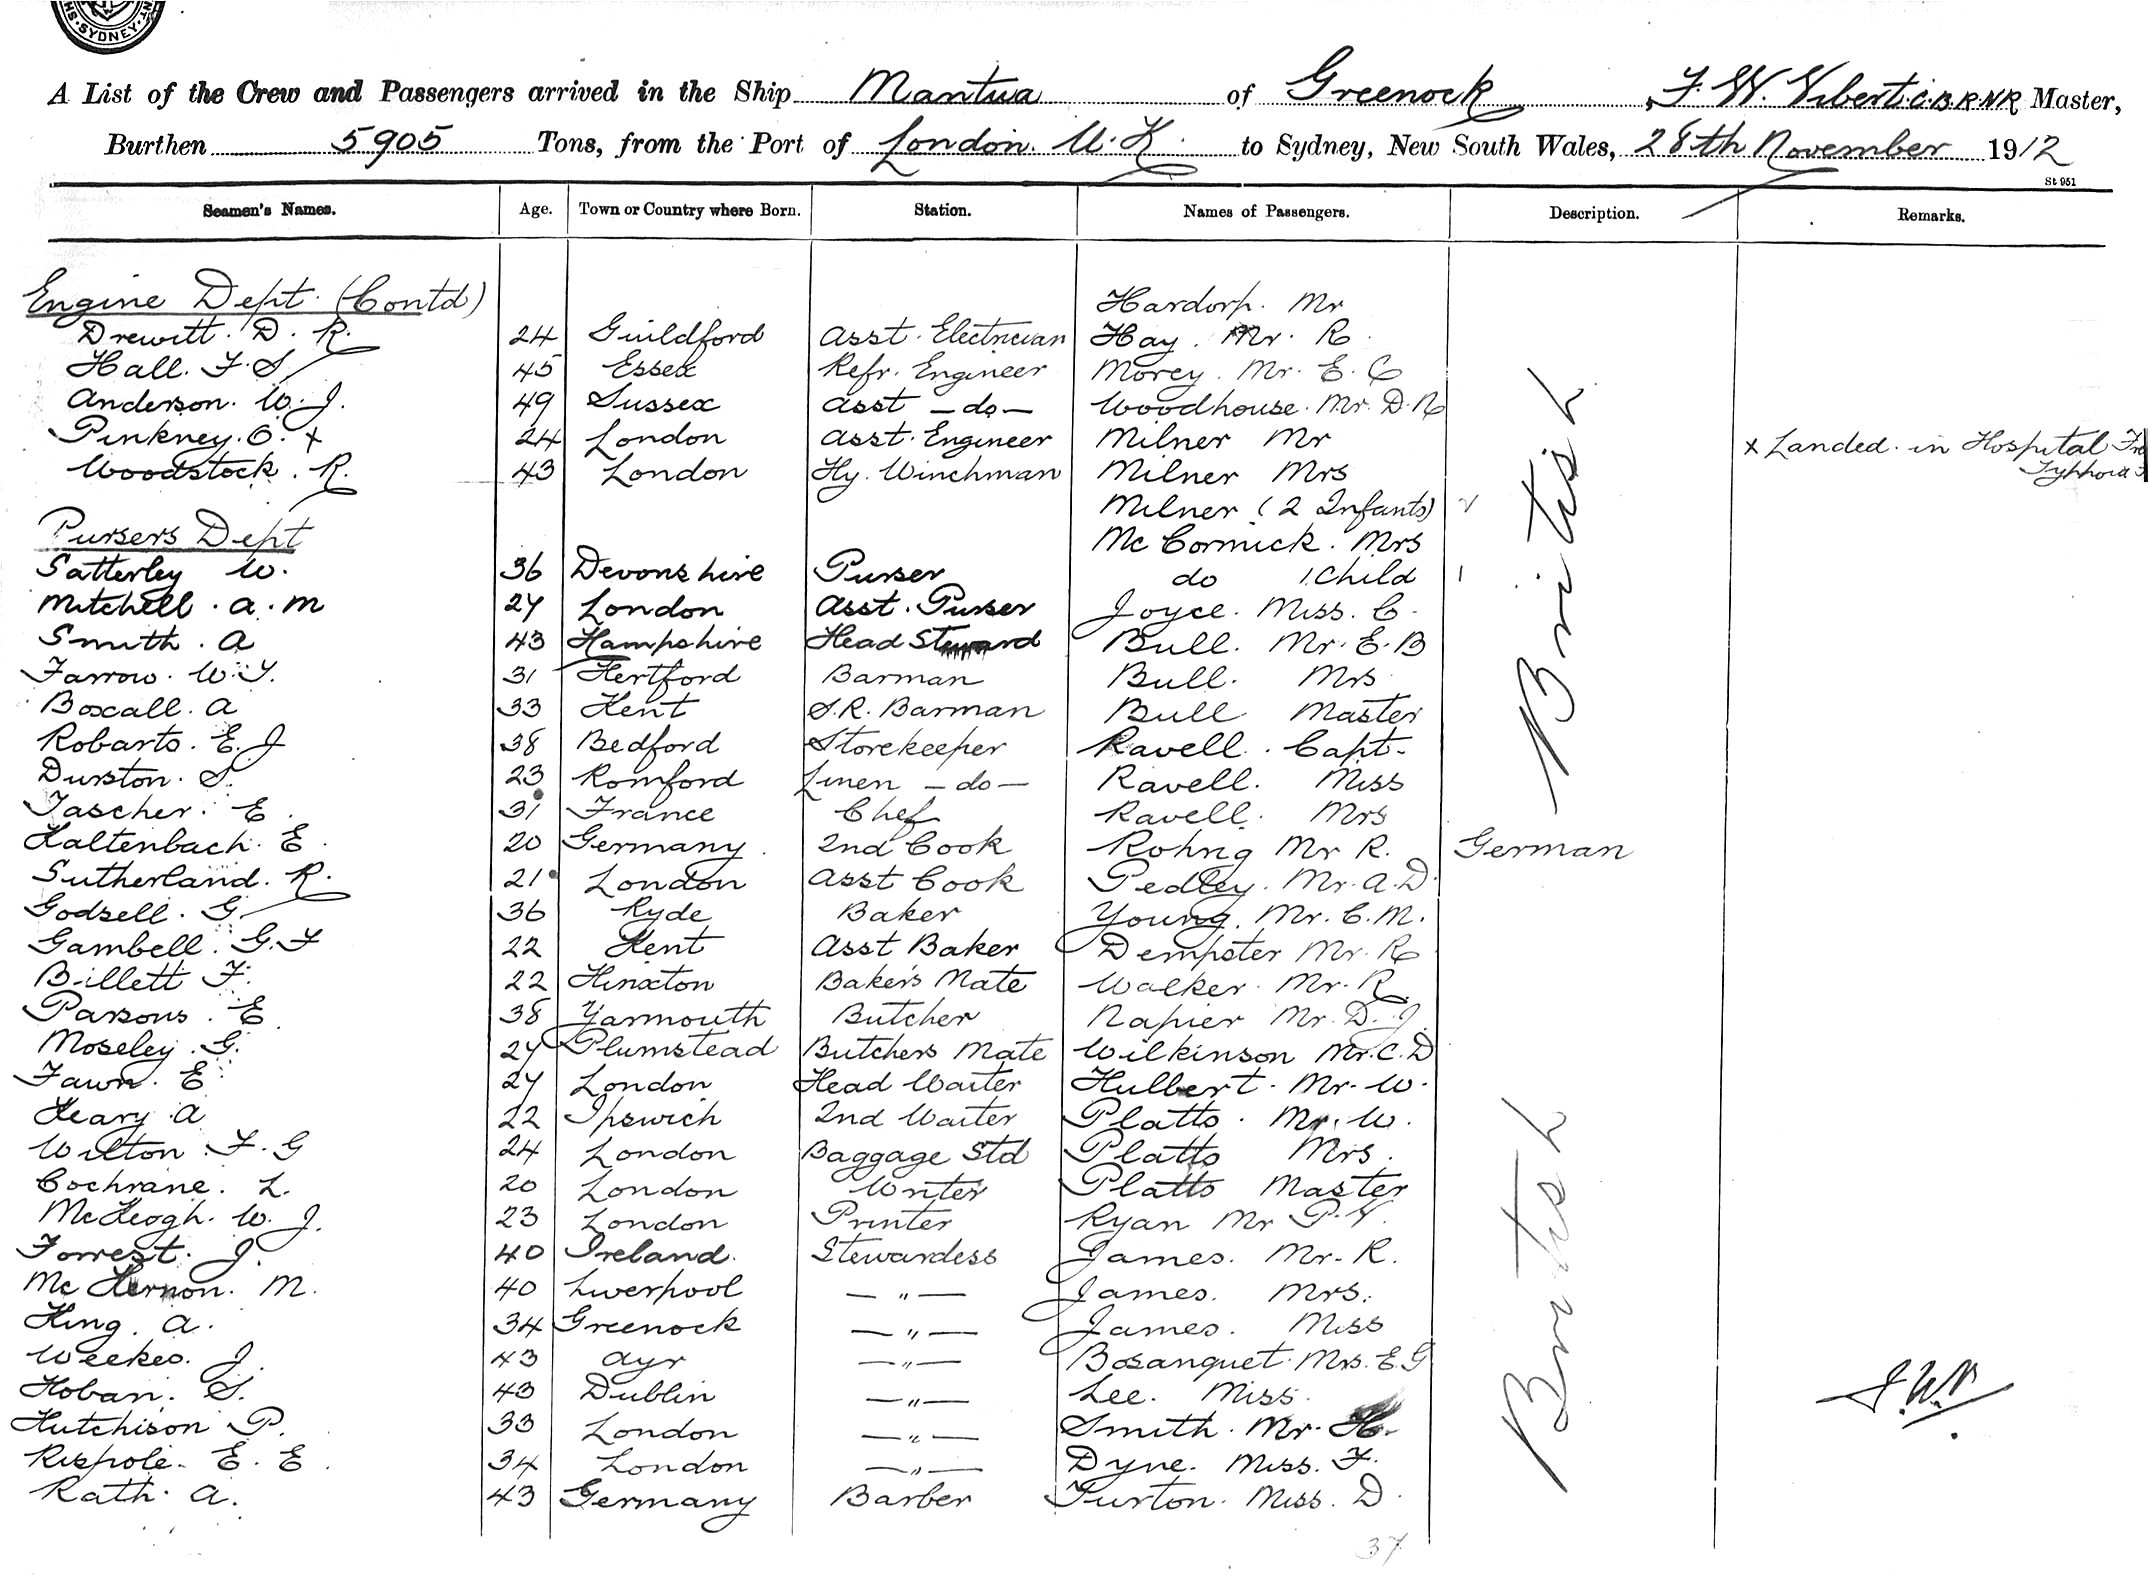 SYDNEY
A List of the Crew and Passengers arrived in the Ship Mantua of Greenock, F. W. Vibert C.B. R.N.R Master,
Burthen 5905 Tons, from the Port of London. U.K. to Sydney, New South Wales, 28th November 1912
St 951
Seamen's Names. Age. Town or Country where Born. Station. Names of Passengers. Description. Remarks.
Engine Dept. (Contd) Hardorp. Mr
Drewitt. D. R. 24 Guildford Asst. Electrician Hay. Mr. R.
Hall. F. S 45 Essex Refr. Engineer Morey. Mr. E. C
Anderson. W. J. 49 Sussex Asst — do — Woodhouse. Mr. D. R
Pinkney. C. x 24 London Asst. Engineer Milner Mr x Landed in Hospital
Woodstock. R. 43 London Hy. Winchman Milner Mrs Typhoid
Milner (2 Infants)
Pursers Dept McCormick. Mrs
Satterley W. 36 Devonshire Purser do 1 Child 1
Mitchell. A. M 27 London Asst. Purser Joyce. Miss. C.
Smith. A 43 Hampshire Head Steward Bull. Mr. E. B
Farrow. W. Y. 31 Hertford Barman Bull. Mrs
Boxall. A 33 Kent S.R. Barman Bull Master
Robarts. E. J 38 Bedford Storekeeper Ravell. Capt.
Durston. S. 23 Romford Linen — do — Ravell. Miss
British
Tascher. E 31 France Chef Ravell. Mrs
Kaltenbach. E 20 Germany 2nd Cook Rohrig Mr R. German
Sutherland. R. 21 London Asst Cook Pedley. Mr. A. D.
Godsell. G. 36 Ryde Baker Young. Mr. C. M.
Gambell. G. F 22 Kent Asst Baker Dempster Mr. R
Billett F. 22 Hinxton Baker's Mate Walker. Mr. R
Parsons. E 38 Yarmouth Butcher Napier Mr. D. J.
Moseley. G. 27 Plumstead Butchers Mate Wilkinson Mr. C. D
Fawn. E 27 London Head Waiter Hulbert. Mr. W.
Keary A 22 Ipswich 2nd Waiter Platts. Mr. W.
Wilton. F. G 24 London Baggage Std Platts Mrs.
Cochrane. L. 20 London Writer Platts Master
McKeogh. W. J. 23 London Printer Ryan Mr P.
Forrest. J. 40 Ireland. Stewardess James. Mr. R.
McKernon. M. 40 Liverpool — " — James. Mrs.
King. A. 34 Greenock — " — James. Miss
Weekes. J. 43 Ayr — " — Bosanquet. Mrs. E G
Hoban. S. 43 Dublin — " — Lee. Miss.
Hutchison P. 33 London — " — Smith. Mr. H.
Rispole. E. E. 34 London — " — Dyne. Miss. F.
Rath. A. 43 Germany Barber Turton. Miss. D.
British
37